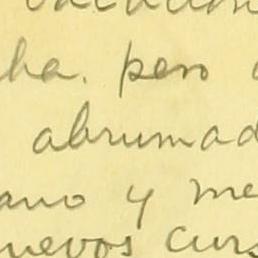 ha. pero
abrumad
ano y me
nuevos curs